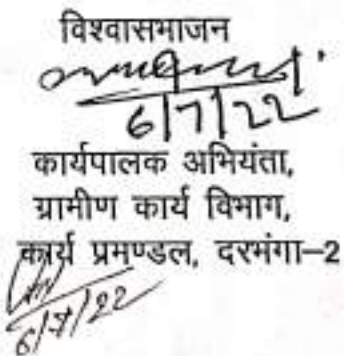 विश्वासभाजन
6/7/22
कार्यपालक अभियंता,
ग्रामीण कार्य विभाग,
कार्य प्रमण्डल, दरभंगा–2
6/7/22